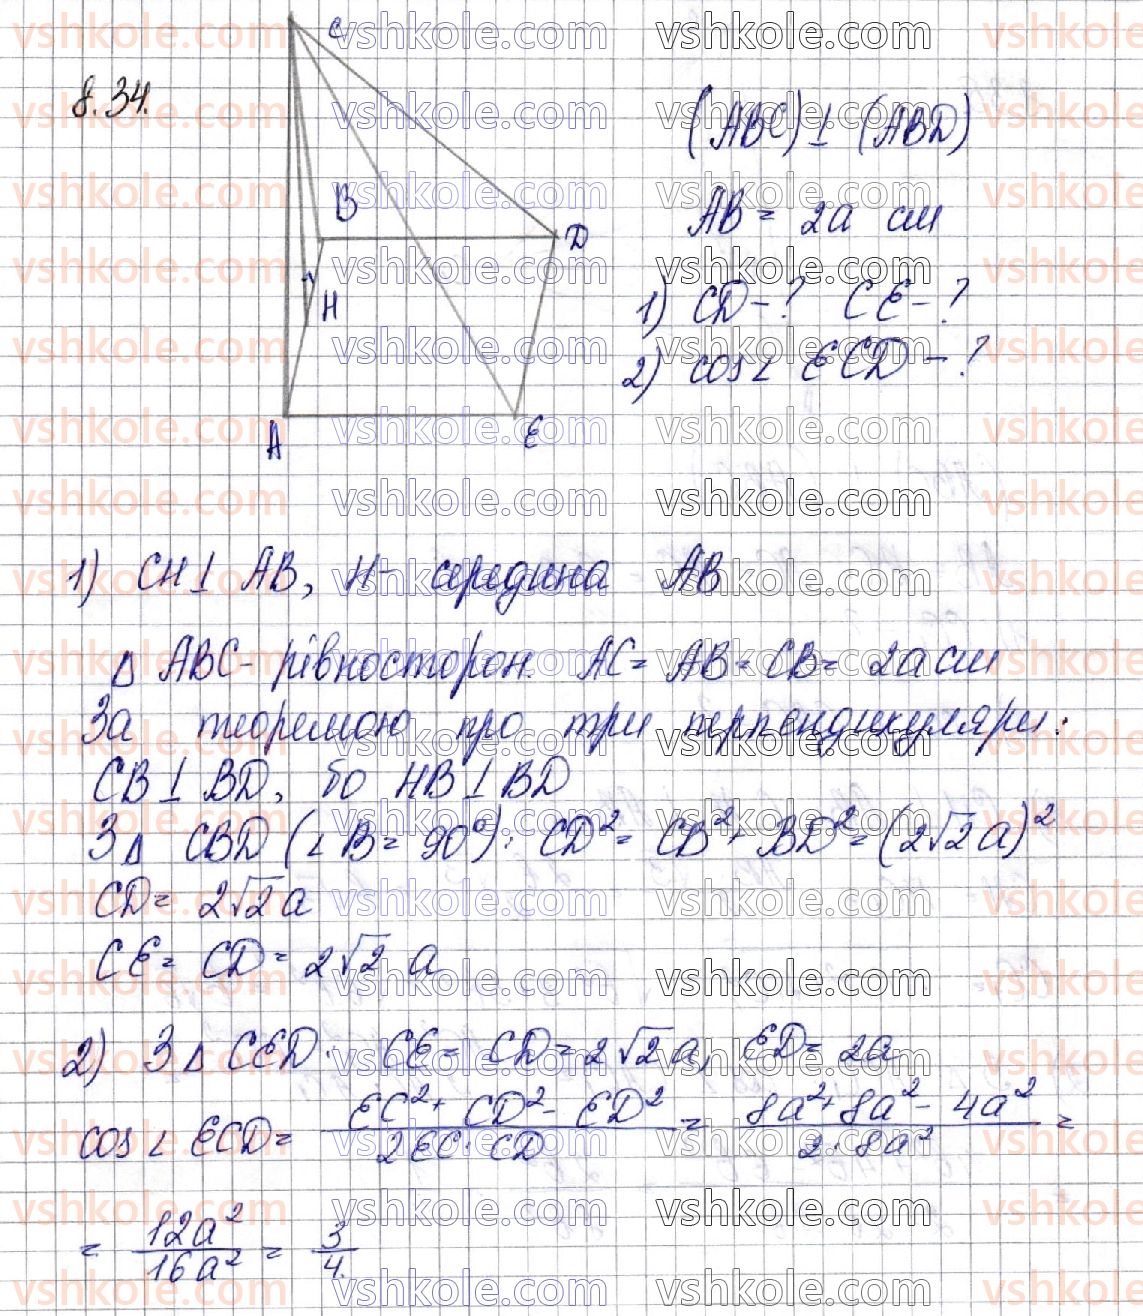 8.34.
C
B
D
H
A
E
(ABC)⊥(ABD)
AB = 2a см
1) CD - ? CE - ?
2) cos∠ECD - ?
1) CH⊥AB, H - середина AB
Δ ABC - рівносторон. AC = AB = CB = 2a см
За теоремою про три перпендикуляри:
CB⊥BD, бо HB⊥BD
З Δ CBD (∠B = 90°): CD² = CB² + BD² = (2√2a)²
CD = 2√2a
CE = CD = 2√2 a
2) З Δ CED. CE = CD = 2√2a, ED = 2a
cos∠ECD = (EC² + CD² - ED²)/(2EC·CD) = (8a² + 8a² - 4a²)/(2·8a²) =
= 12a²/16a² = 3/4.
vshkole.com